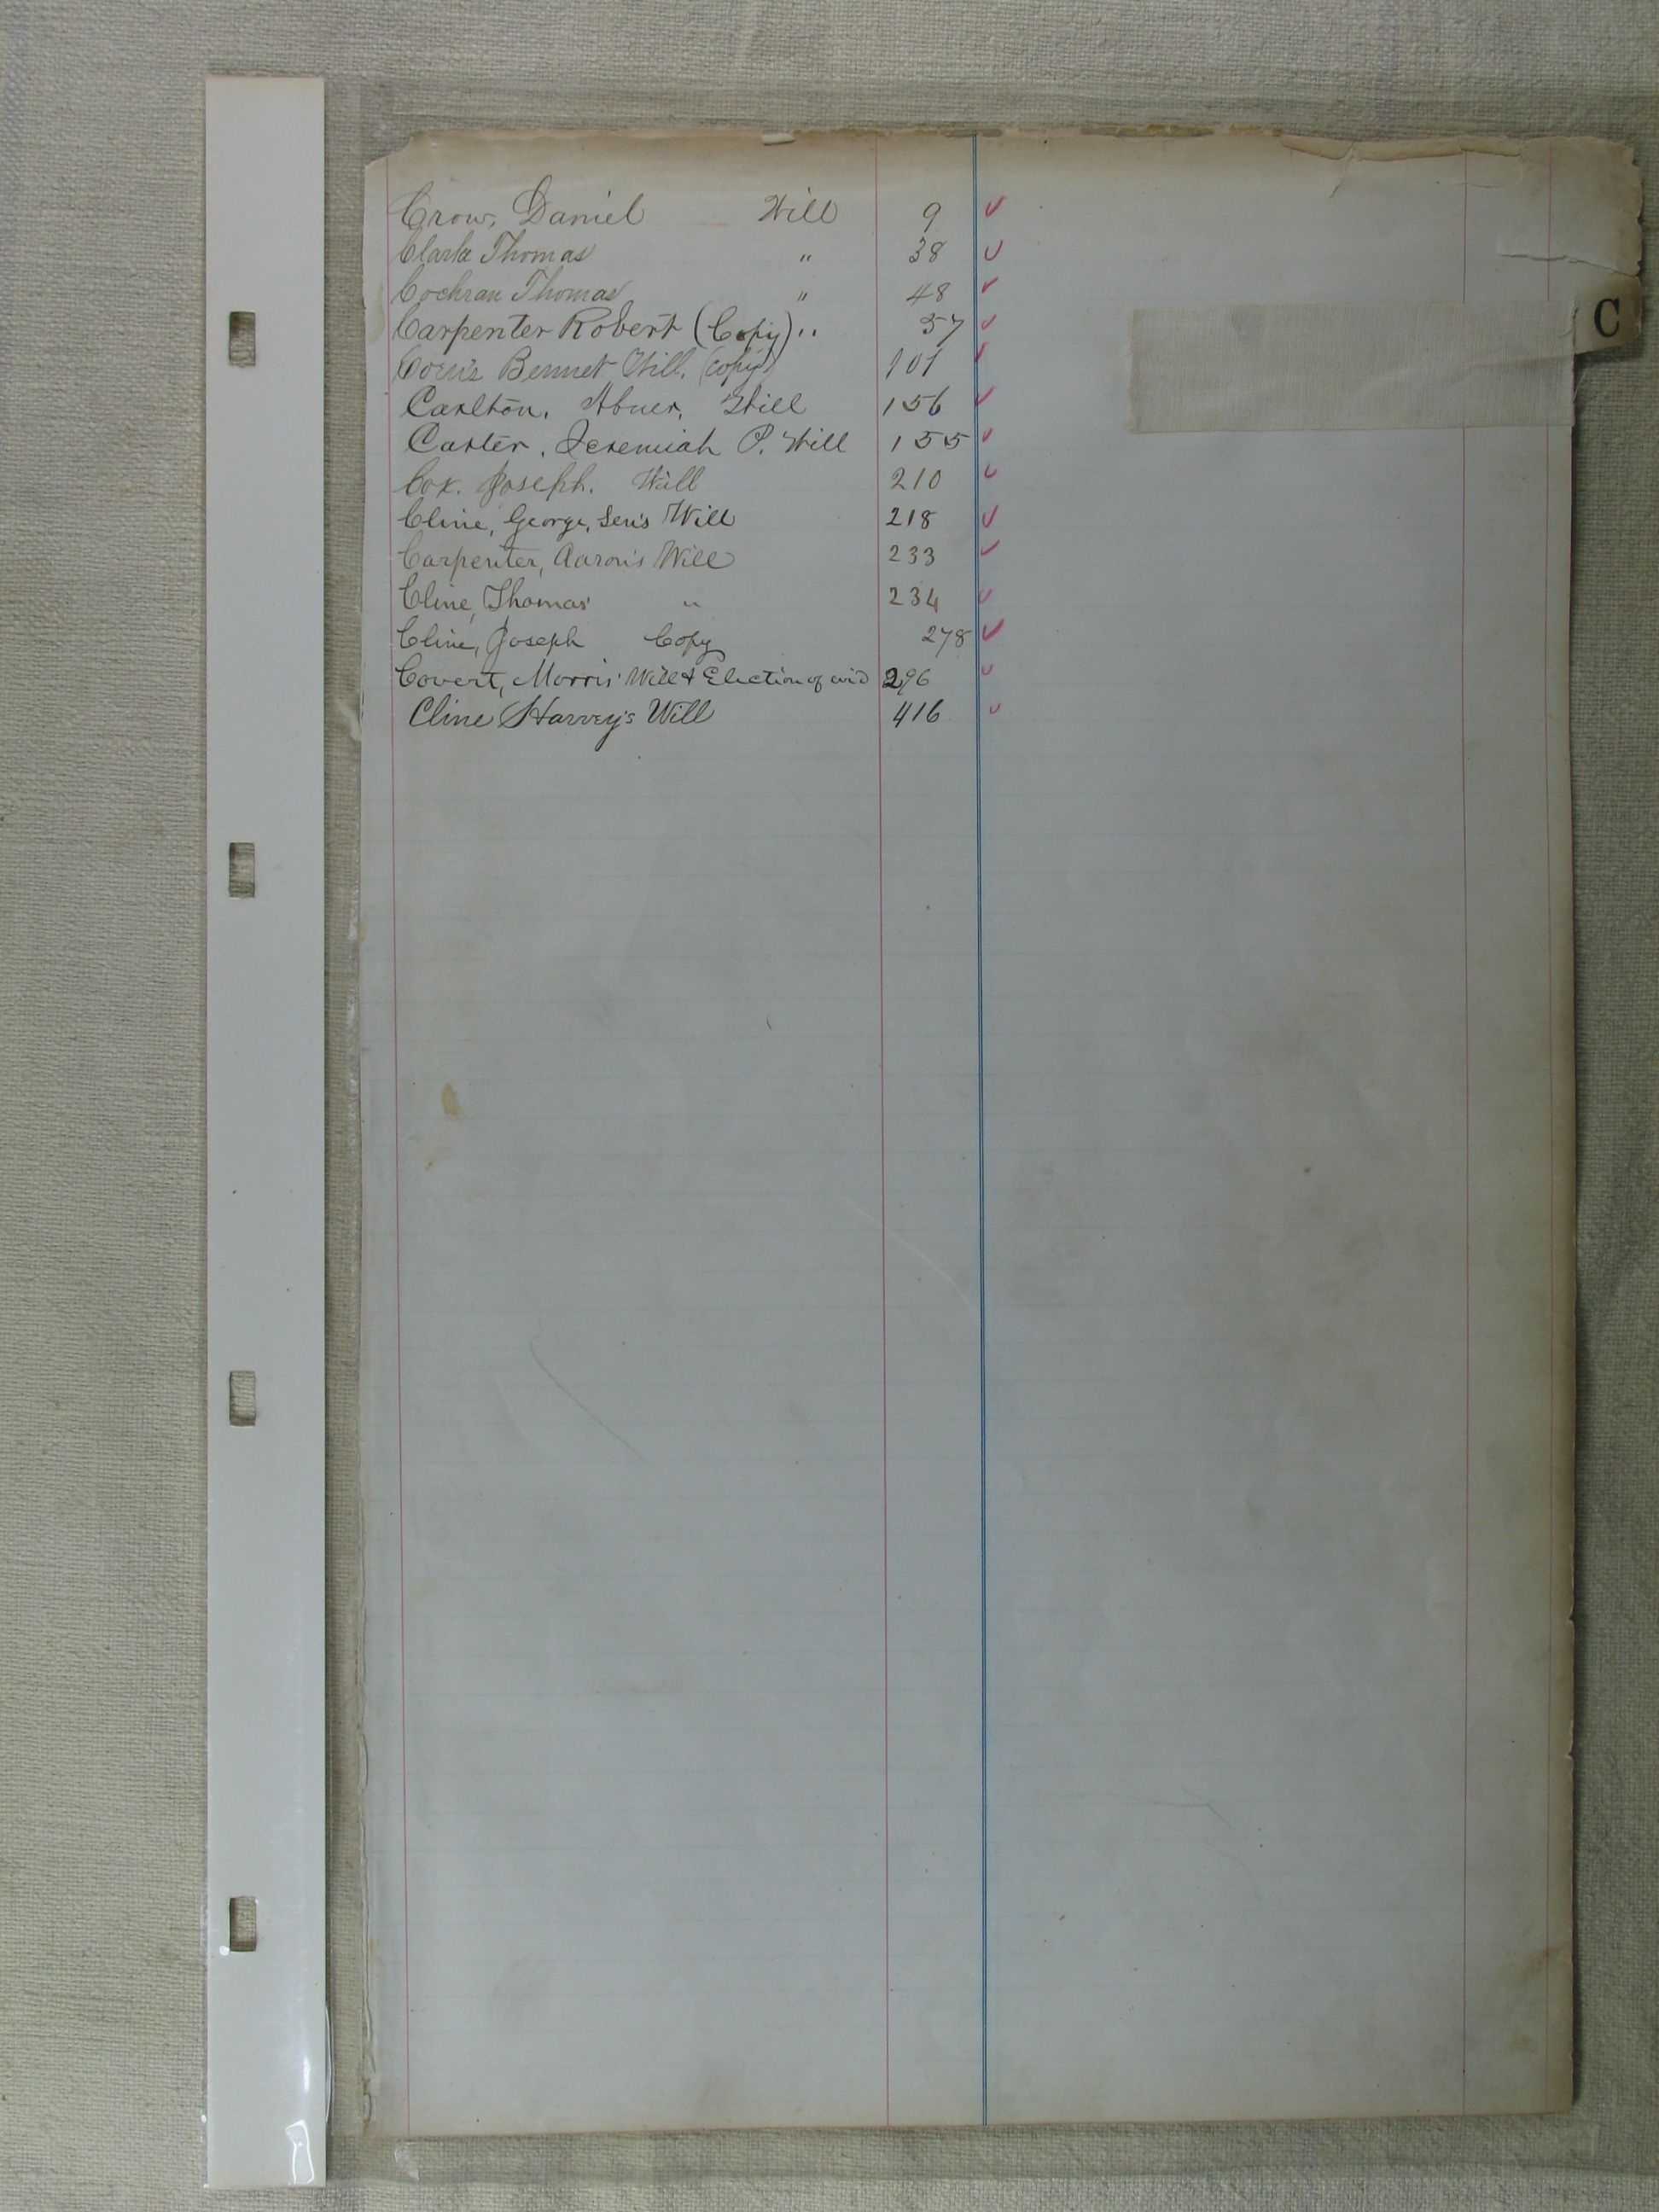 Crow, Daniel Will 9
Clark Thomas " 38
Cochran Thomas " 48
Carpenter Robert (Copy) " 57
Bennet Will. (copy) 101
Carlton, Abner, Will 156
Carter, Jeremiah P. Will 155
Cox. Joseph. Will 210
Cline, George, Sen's Will 218
Carpenter, Aaron's Will 233
Cline, Thomas' " 234
Cline, Joseph Copy 278
Covert, Morris' Will & Election of wid 296
Cline Harvey's Will 416
C